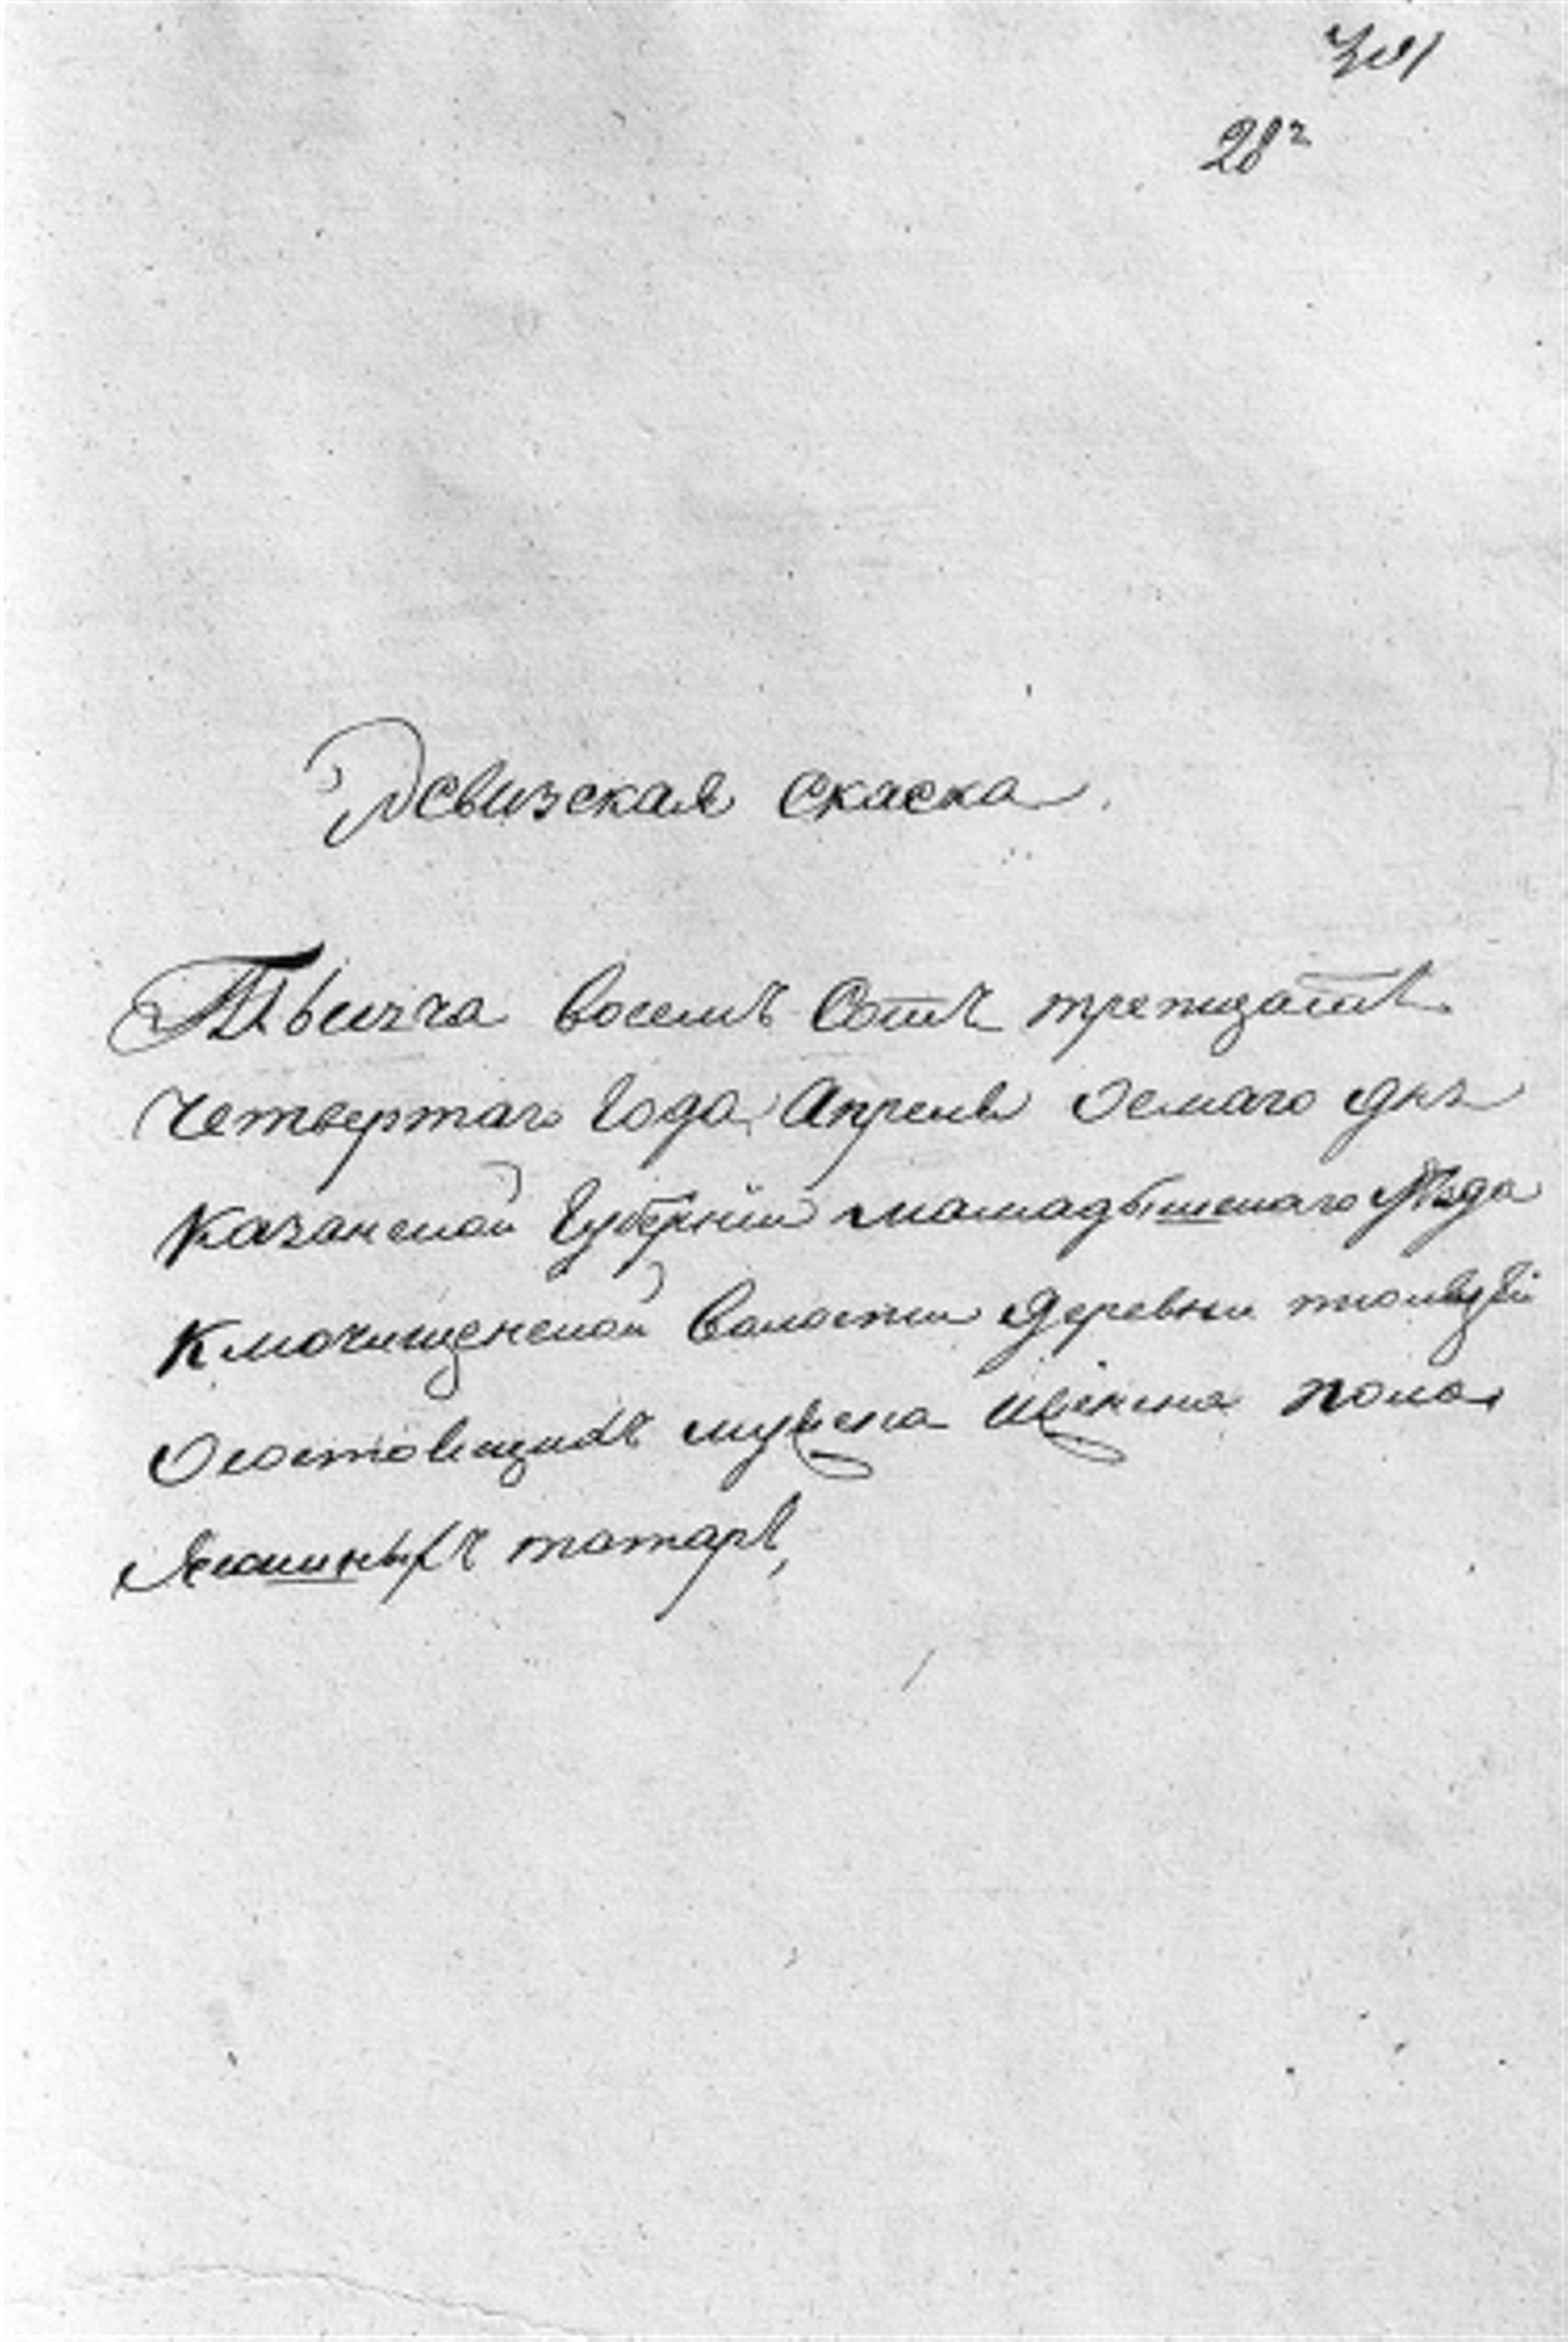 301
28
Ревизская скаска
Тысеча восемъ Сотъ тритцать
Четвертаго Года Апреля осмаго дня
Казанской Губернїи мамадышскаго уѣзда
Ключищенской Волости деревни
О состоящихъ мужеска и женска пола
Ясашныхъ татаръ,